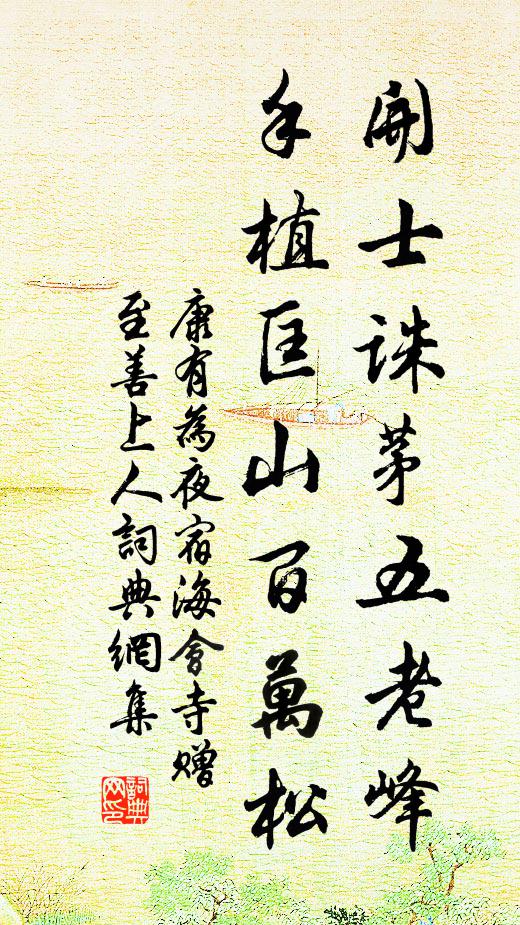 開士誅茅五老峰
手植匡山百萬松
康有為夜宿海會寺贈
至善上人詞典網集
詞典
网印